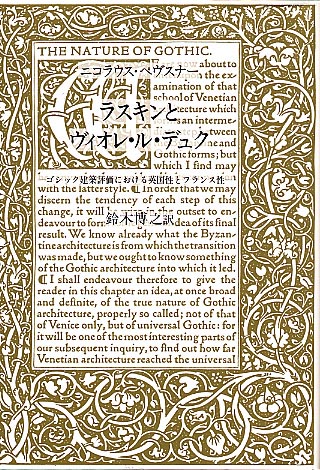 THE NATURE OF GOTHIC.
ニコラウス・ペヴスナー
now about to
upon the ex-
amination of that
school of Venetian
architecture which
an interme-
between
and
Gothic forms; but
which I find may
ラスキンと
ヴィオレ・ル・デュク
ゴシック建築評価における英国性とフランス性
鈴木博之訳
with the latter style. ¶ In order that we may
discern the tendency of each step of this
change, it will outset to en-
deavour to form idea of its final
result. We know already what the Byzan-
tine architecture is from which the transition
was made, but we ought to know something
of the Gothic architecture into which it led.
¶ I shall endeavour therefore to give the
reader in this chapter an idea, at once broad
and definite, of the true nature of Gothic
architecture, properly so called; not of that
of Venice only, but of universal Gothic: for
it will be one of the most interesting parts of
our subsequent inquiry, to find out how far
Venetian architecture reached the universal